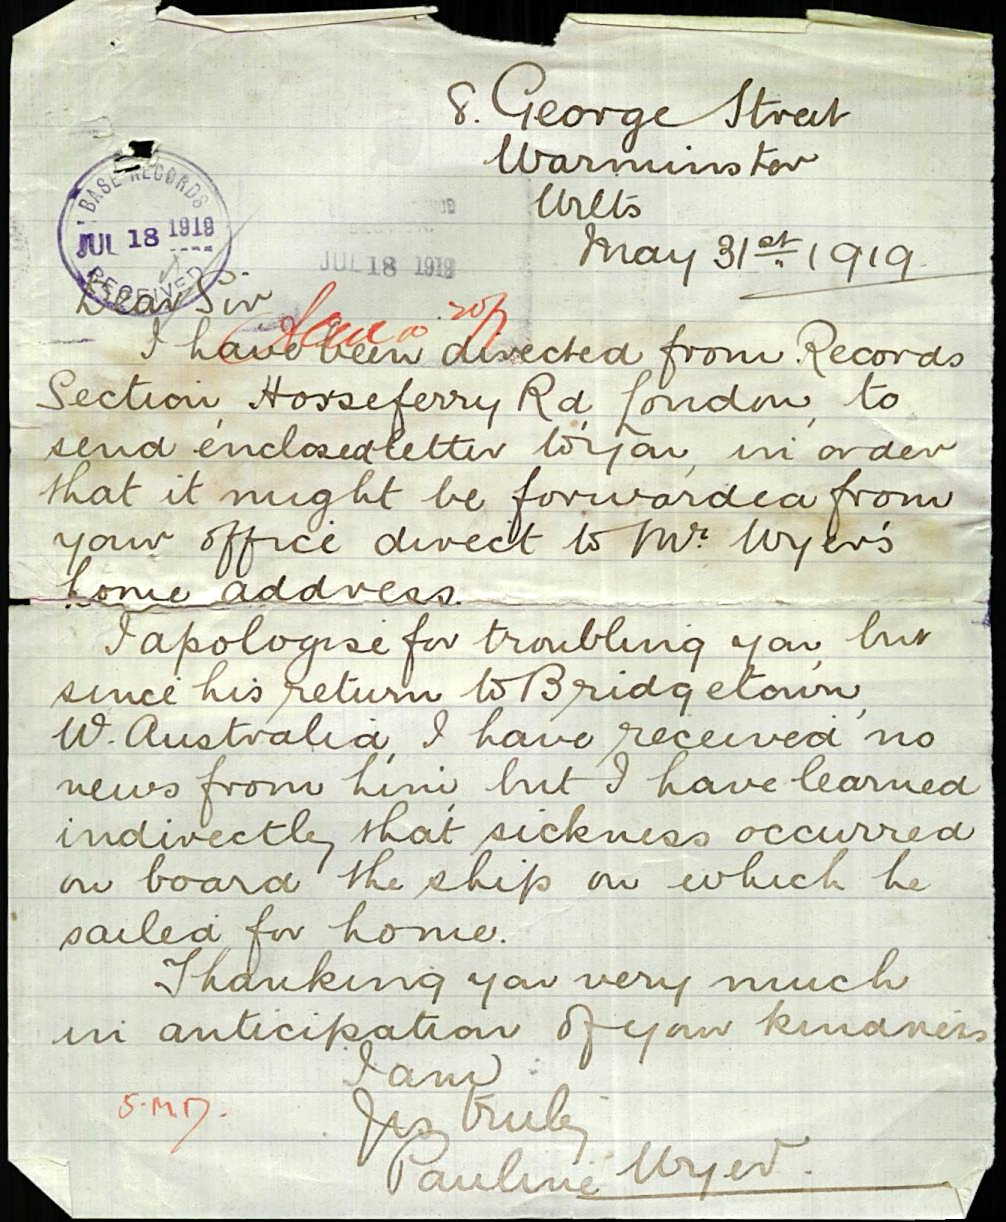 8. George Street
Warminster
Wilts
May 31st 1919.
BASE RECORDS
JUL 18 1919
RECEIVED
JUL 18 1919
Dear Sir
I have been directed from Records
Section, Horseferry Rd, London, to
send enclosed letter to you, in order
that it might be forwarded from
your office direct to Mr. Wyer's
home address.
I apologise for troubling you, but
since his return to Bridgetown,
W. Australia, I have received no
news from him, but I have learned
indirectly that sickness occurred
on board the ship on which he
sailed for home.
Thanking you very much
in anticipation of your kindness
I am
Yrs truly
Pauline Wyer.
S.M.D.